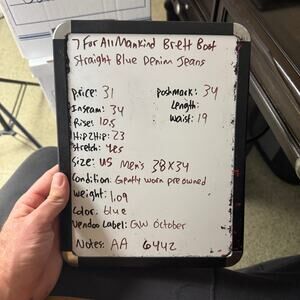 7 For All Mankind Brett Boot
Straight Blue Denim Jeans
Price: 31
Poshmark: 34
Inseam: 34
Length:
Rise: 10.5
Waist: 19
Hip2Hip: 23
Stretch: Yes
Size: US Men's 38X34
Condition: Gently worn pre owned
Weight: 1.09
Color: blue
Vendoo Label: GW October
Notes: AA 6442